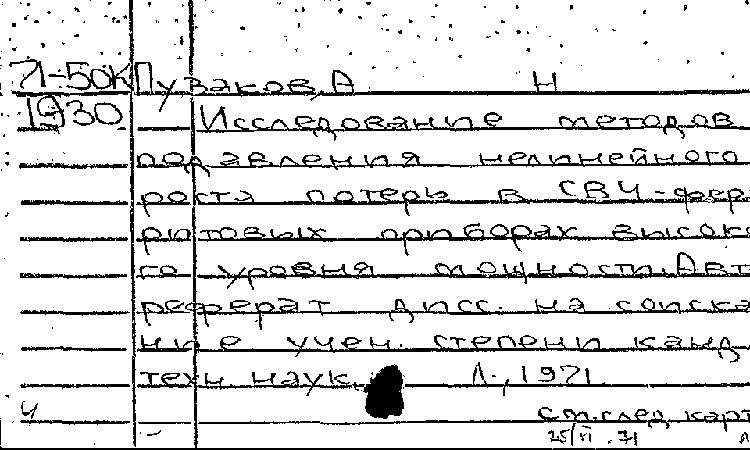 71-50К Пузаков, А Н
1930 Исследование методов
подавления нелинейного
роста потерь в СВЧ-фер
ритовых приборах высоко
го уровня мощности. Авт
реферат дисс. на соиска
ние учен. степени канд
техн. наук. Л., 1971.
ч См. след. карт
25/VI.71